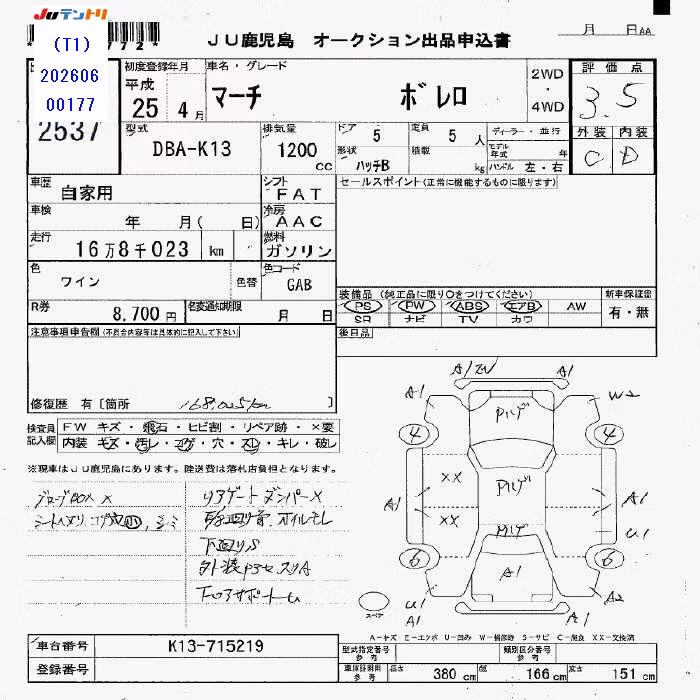 JUテントリ
(T1)
202606
00177
772*
JU鹿児島 オークション出品申込書
月 日AA
初度登録年月
平成
25 4月
車名・グレード
マーチ ボレロ
2WD
・
4WD
評価点
3.5
外装 内装
C D
2537
型式
DBA-K13
排気量
1200
cc
ドア 5
形状
ハッチB
定員 5 人
積載 kg
ディーラー・並行
モデル年式 年
ハンドル 左・右
車歴
自家用
シフト
FAT
セールスポイント(正常に機能するものに限ります)
車検
年 月( 日)
冷房
AAC
走行
16万8千023 km
燃料
ガソリン
色
ワイン
色替
色コード
GAB
装備品 (純正品に限り○をつけてください)
PS PW ABS エアB AW
SR ナビ TV カワ
新車保証書
有・無
R券
8,700円
名変通知期限
月 日
後日品
注意事項申告欄(不具合内容等は具体的に記入して下さい)
修復歴 有〔箇所 168,025km 〕
検査員
記入欄
FW キズ・飛石・ヒビ割・リペア跡・×要
内装 キズ・汚レ・コゲ・穴・スレ・キレ・破レ
※現車はJU鹿児島にあります。陸送費は落札店負担となります。
グローブBOX ×
リアゲートダンパー×
下回りS
A1
A1
W2
4
4
××
××
A1
A1
U1
6
6
A1
U1
A2
A1
スペア
A-キズ E-エクボ U-凹み W-補修跡 S-サビ C-腐食 XX-交換済
車台番号
K13-715219
登録番号
型式指定番号
参考
類別区分番号
参考
車庫証明用
参考
長さ 380 cm 幅 166 cm 高さ 151 cm